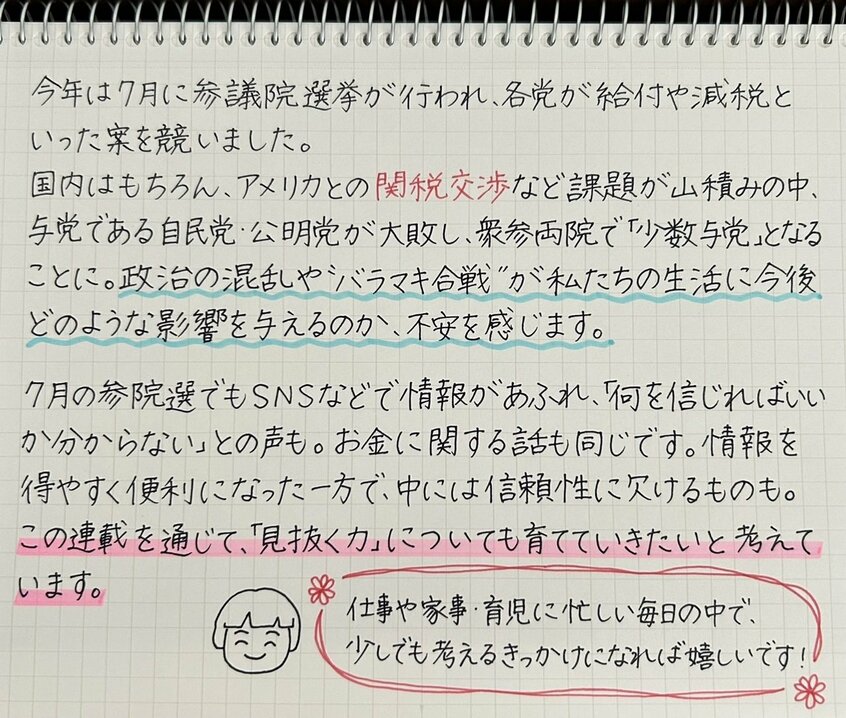 今年は7月に参議院選挙が行われ、各党が給付や減税と
いった案を競いました。
国内はもちろん、アメリカとの関税交渉など課題が山積みの中、
与党である自民党・公明党が大敗し、衆参両院で「少数与党」となる
ことに。政治の混乱や“バラマキ合戦”が私たちの生活に今後
どのような影響を与えるのか、不安を感じます。
7月の参院選でもSNSなどで情報があふれ、「何を信じればいい
か分からない」との声も。お金に関する話も同じです。情報を
得やすく便利になった一方で、中には信頼性に欠けるものも。
この連載を通じて、「見抜く力」についても育てていきたいと考えて
います。
仕事や家事・育児に忙しい毎日の中で、
少しでも考えるきっかけになれば嬉しいです!